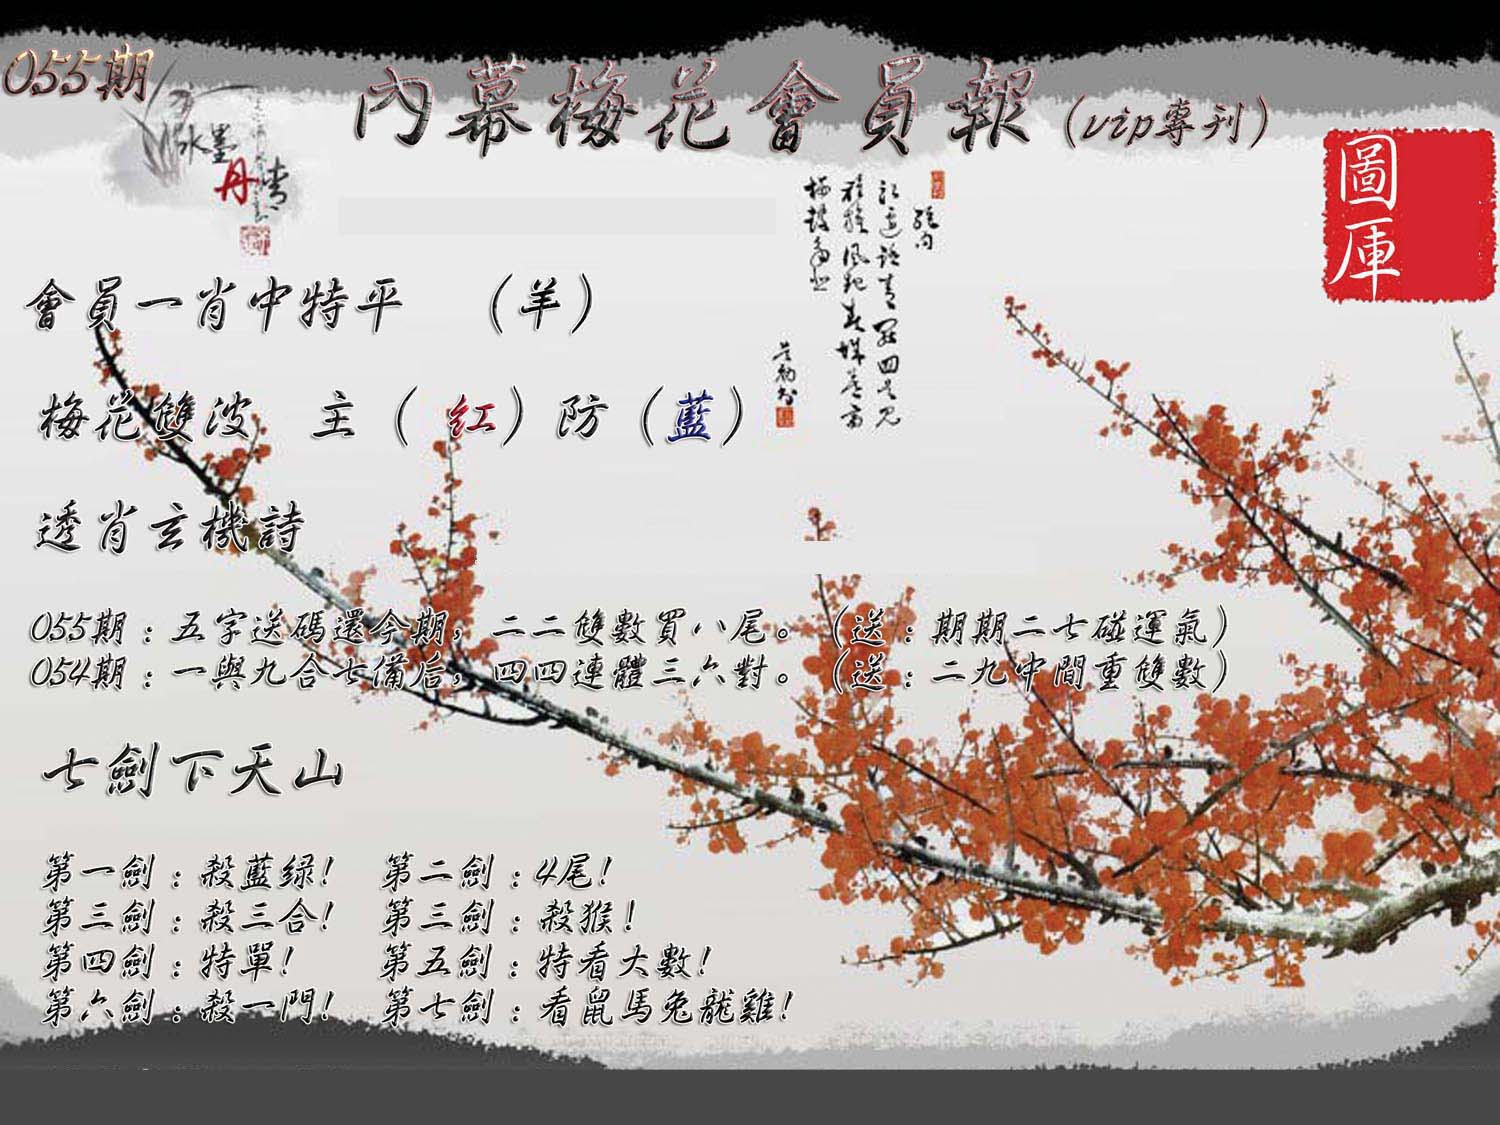 055期
內幕梅花會員報(vip專刊)
水墨
丹青
圖庫
會員一肖中特平 (羊)
梅花雙波 主(紅)防(藍)
透肖玄機詩
055期:五字送碼還今期,二二雙數買八尾。(送:期期二七碰運氣)
054期:一與九合七備后,四四連體三六對。(送:二九中間重雙數)
七劍下天山
第一劍:殺藍绿! 第二劍:4尾!
第三劍:殺三合! 第三劍:殺猴!
第四劍:特單! 第五劍:特看大數!
第六劍:殺一門! 第七劍:看鼠馬兔龍雞!